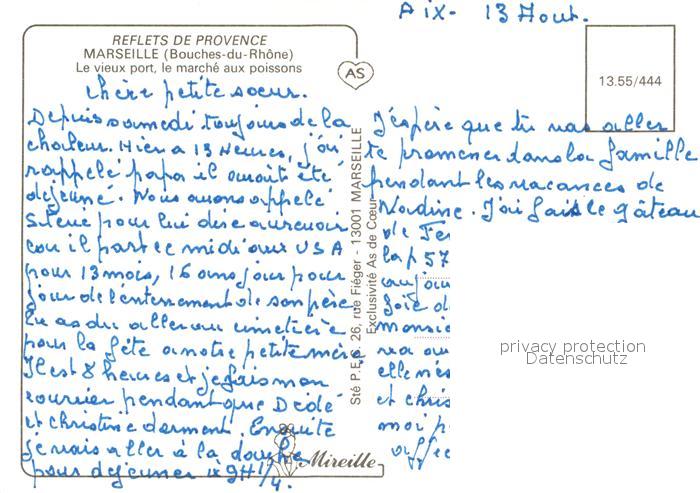 Aix - 13 Aout.
REFLETS DE PROVENCE
MARSEILLE (Bouches-du-Rhône)
Le vieux port, le marché aux poissons
AS
13.55/444
chère petite soeur.
Depuis samedi toujours de la
chaleur. Hier a 13 Heures, j'ai
rappelé papa il avait été
dejeuné. Nous avons appelé
pour lui dire aurevoir
car il part ce midi aux USA
pour 13 mois, 16 ans jour pour
jour de l'enterrement de son père
tu as du aller au cimetière
pour la fête a notre petite mère
Il est 8 heures et je fais mon
courrier pendant que Dédé
et christine dorment. Ensuite
je vais aller à la douche
pour dejeuner à 9H 1/4.
Mireille
Sté P.E.C. 26, rue Fiéger - 13001 MARSEILLE
Exclusivité As de Cœur
J'espère que tu vas aller
te promener dans la famille
pendant les vacances de
Nadine. J'ai fais le gâteau
de
la p 57
aujour
joie d
monsie
va au
elle n'es
et chris
moi p
affec
privacy protection
Datenschutz